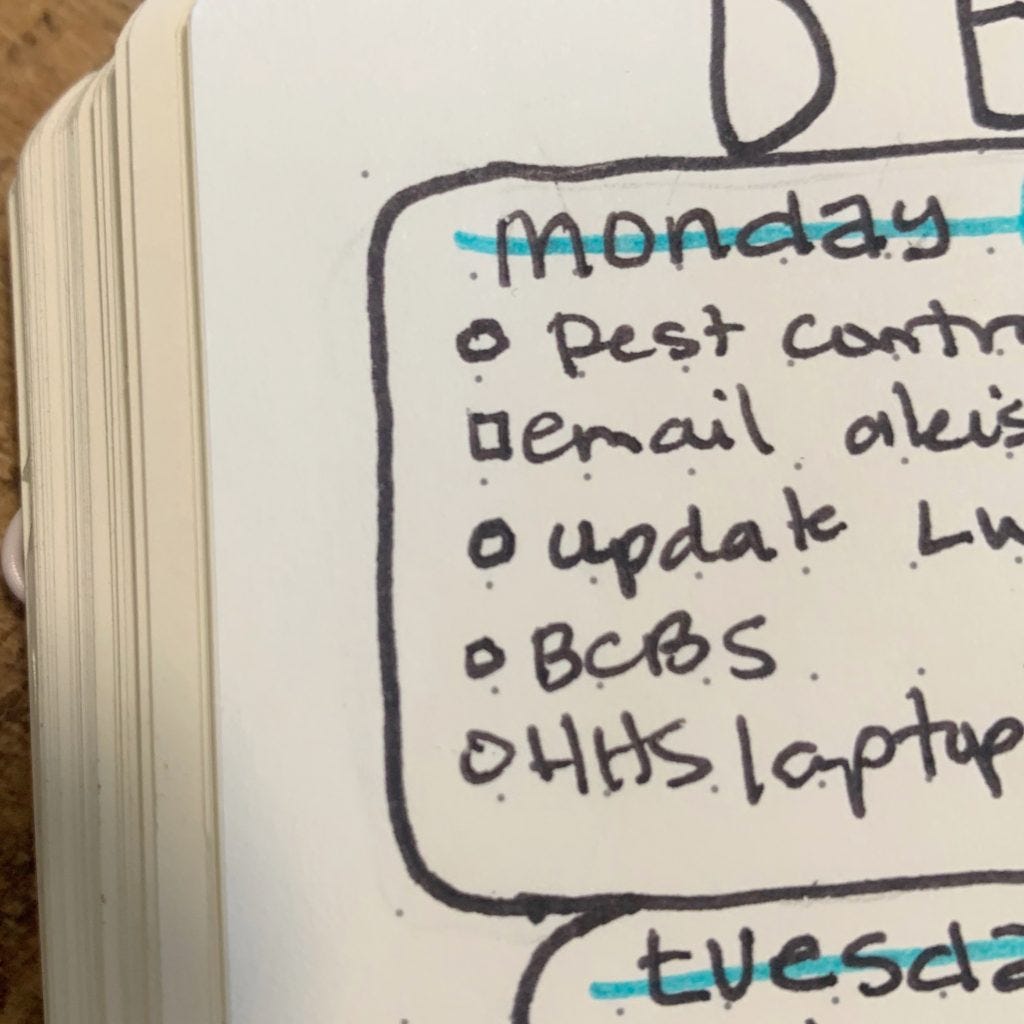 DE
monday
pest contro
email aleis
update LW
BCBS
HHS laptop
tuesda